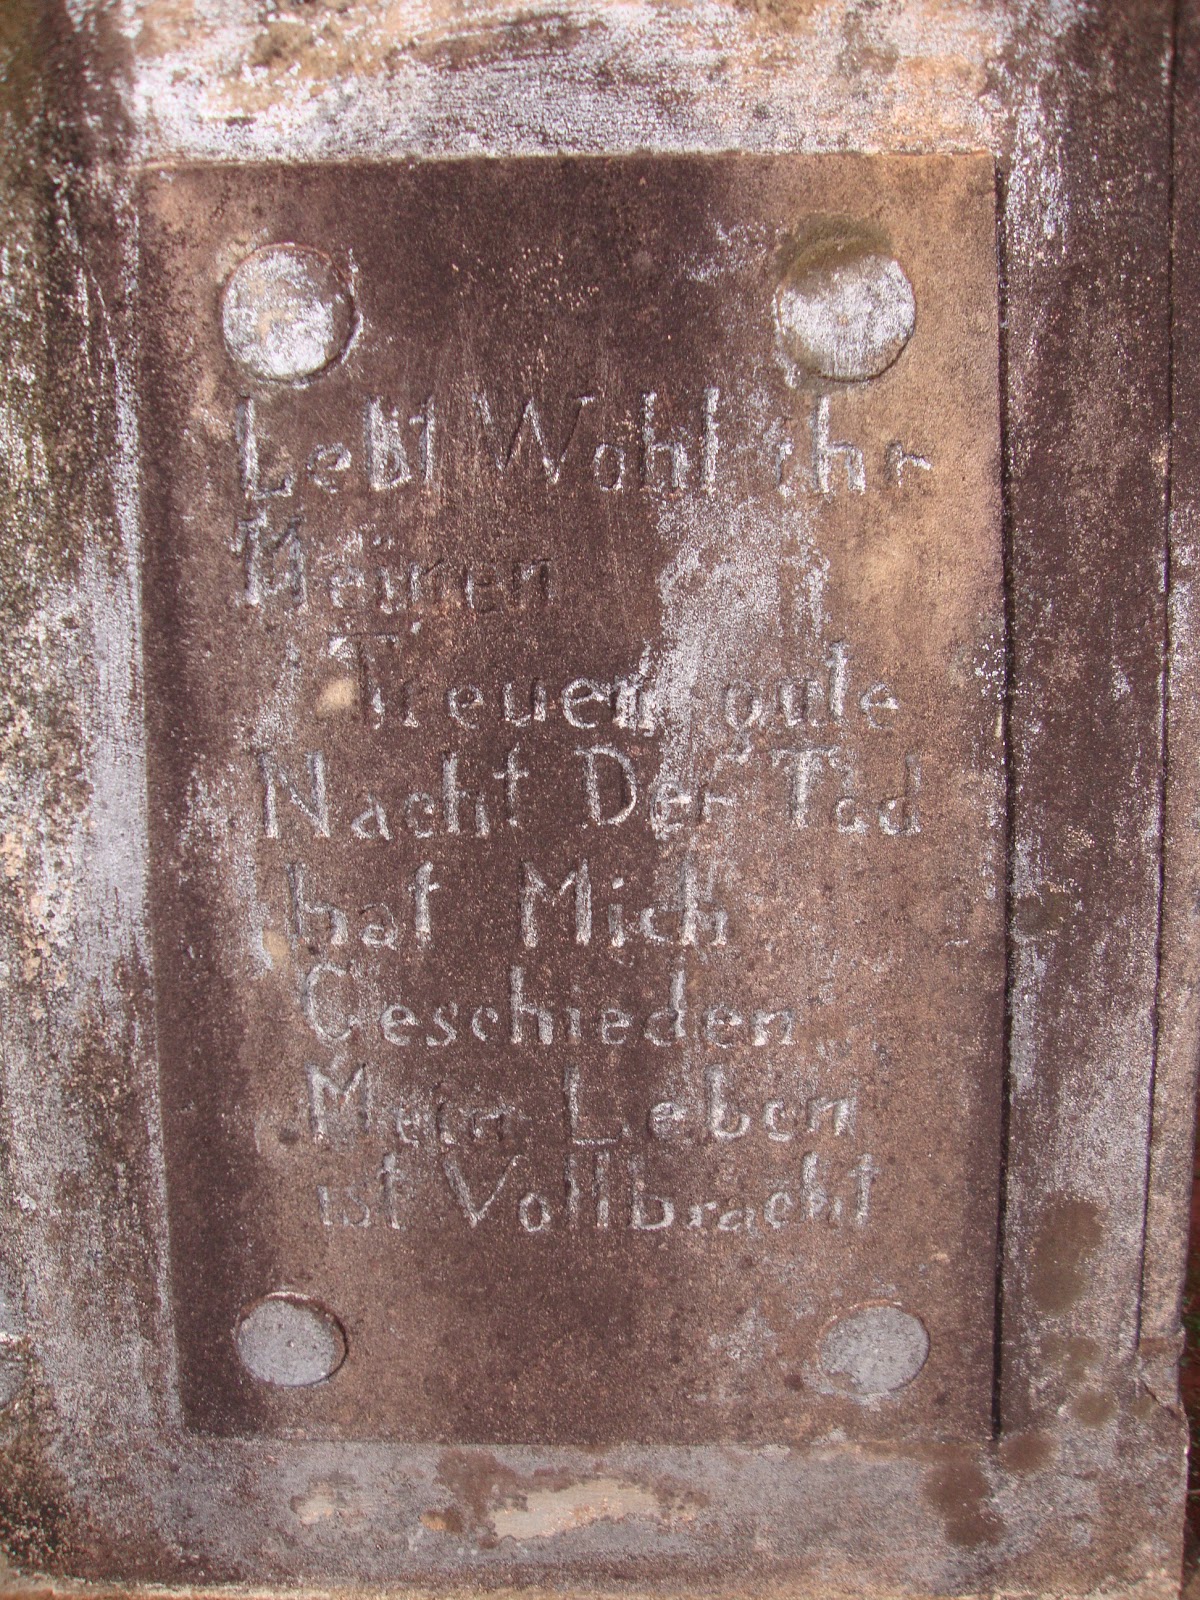 Lebt Wohl ihr
Meinen
Treuen gute
Nacht Der Tod
hat Mich
Geschieden
Mein Leben
ist Vollbracht